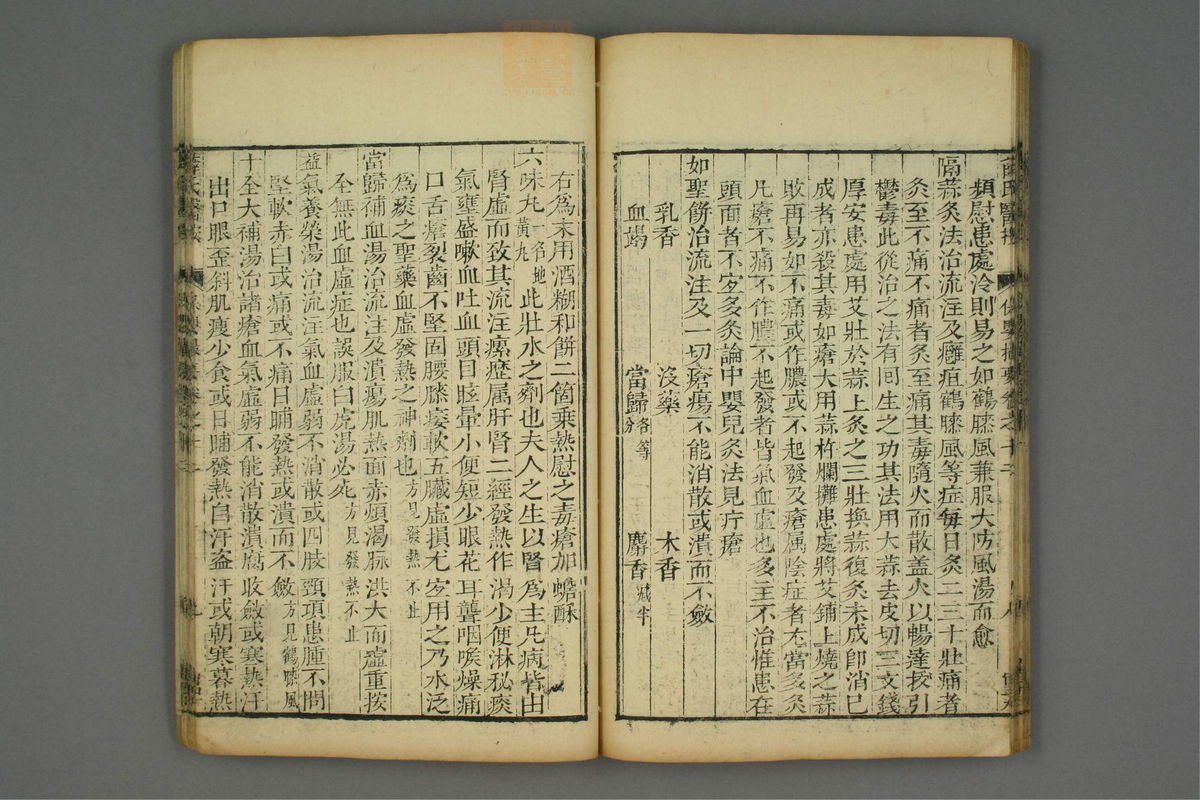 頻慰患處冷則易之如鶴膝風兼服大防風湯而愈
隔蒜灸法治流注及癰疽鶴膝風等症每日灸二三十壯痛者
灸至不痛不痛者灸至痛其毒隨火而散盖火以暢達拔引
鬱毒此從治之法有囘生之功其法用大蒜去皮切三文錢
厚安患處用艾壯於蒜上灸之三壯換蒜復灸未成卽消已
成者亦殺其毒如瘡大用蒜杵爛攤患處將艾鋪上燒之蒜
敗再易如不痛或作膿或不起發及瘡属陰症者尤當多灸
凡瘡不痛不作膿不起發者皆氣血虚也多主不治惟患在
頭面者不宐多灸論中嬰兒灸法見疔瘡
如聖餅治流注及一切瘡瘍不能消散或潰而不斂
乳香 沒藥 木香
血竭 當歸各等分 麝香减半
右爲末用酒糊和餅二箇乘熱慰之毒瘡加蟾酥
六味丸一名地黃丸此壯水之劑也夫人之生以腎爲主凡病皆由
腎虚而致其流注瘰癧属肝腎二經發熱作渴少便淋秘痰
氣壅盛嗽血吐血頭目眩暈小便短少眼花耳聾咽喉燥痛
口舌瘡裂齒不堅固腰膝痿軟五臟虚損尤宐用之乃水泛
爲痰之聖藥血虚發熱之神劑也方見發熱不止
當歸補血湯治流注及潰瘍肌熱面赤煩渴脉洪大而虚重按
全無此血虛症也誤服白虎湯必死方見發熱不止
益氣養榮湯治流注氣血虚弱不消散或四肢頸項患腫不問
堅軟赤白或痛或不痛日晡發熱或潰而不斂方見鶴膝風
十全大補湯治諸瘡血氣虛弱不能消散潰腐收斂或寒熱汗
出口眼歪斜肌瘦少食或日晡發熱自汗盗汗或朝寒暮熱